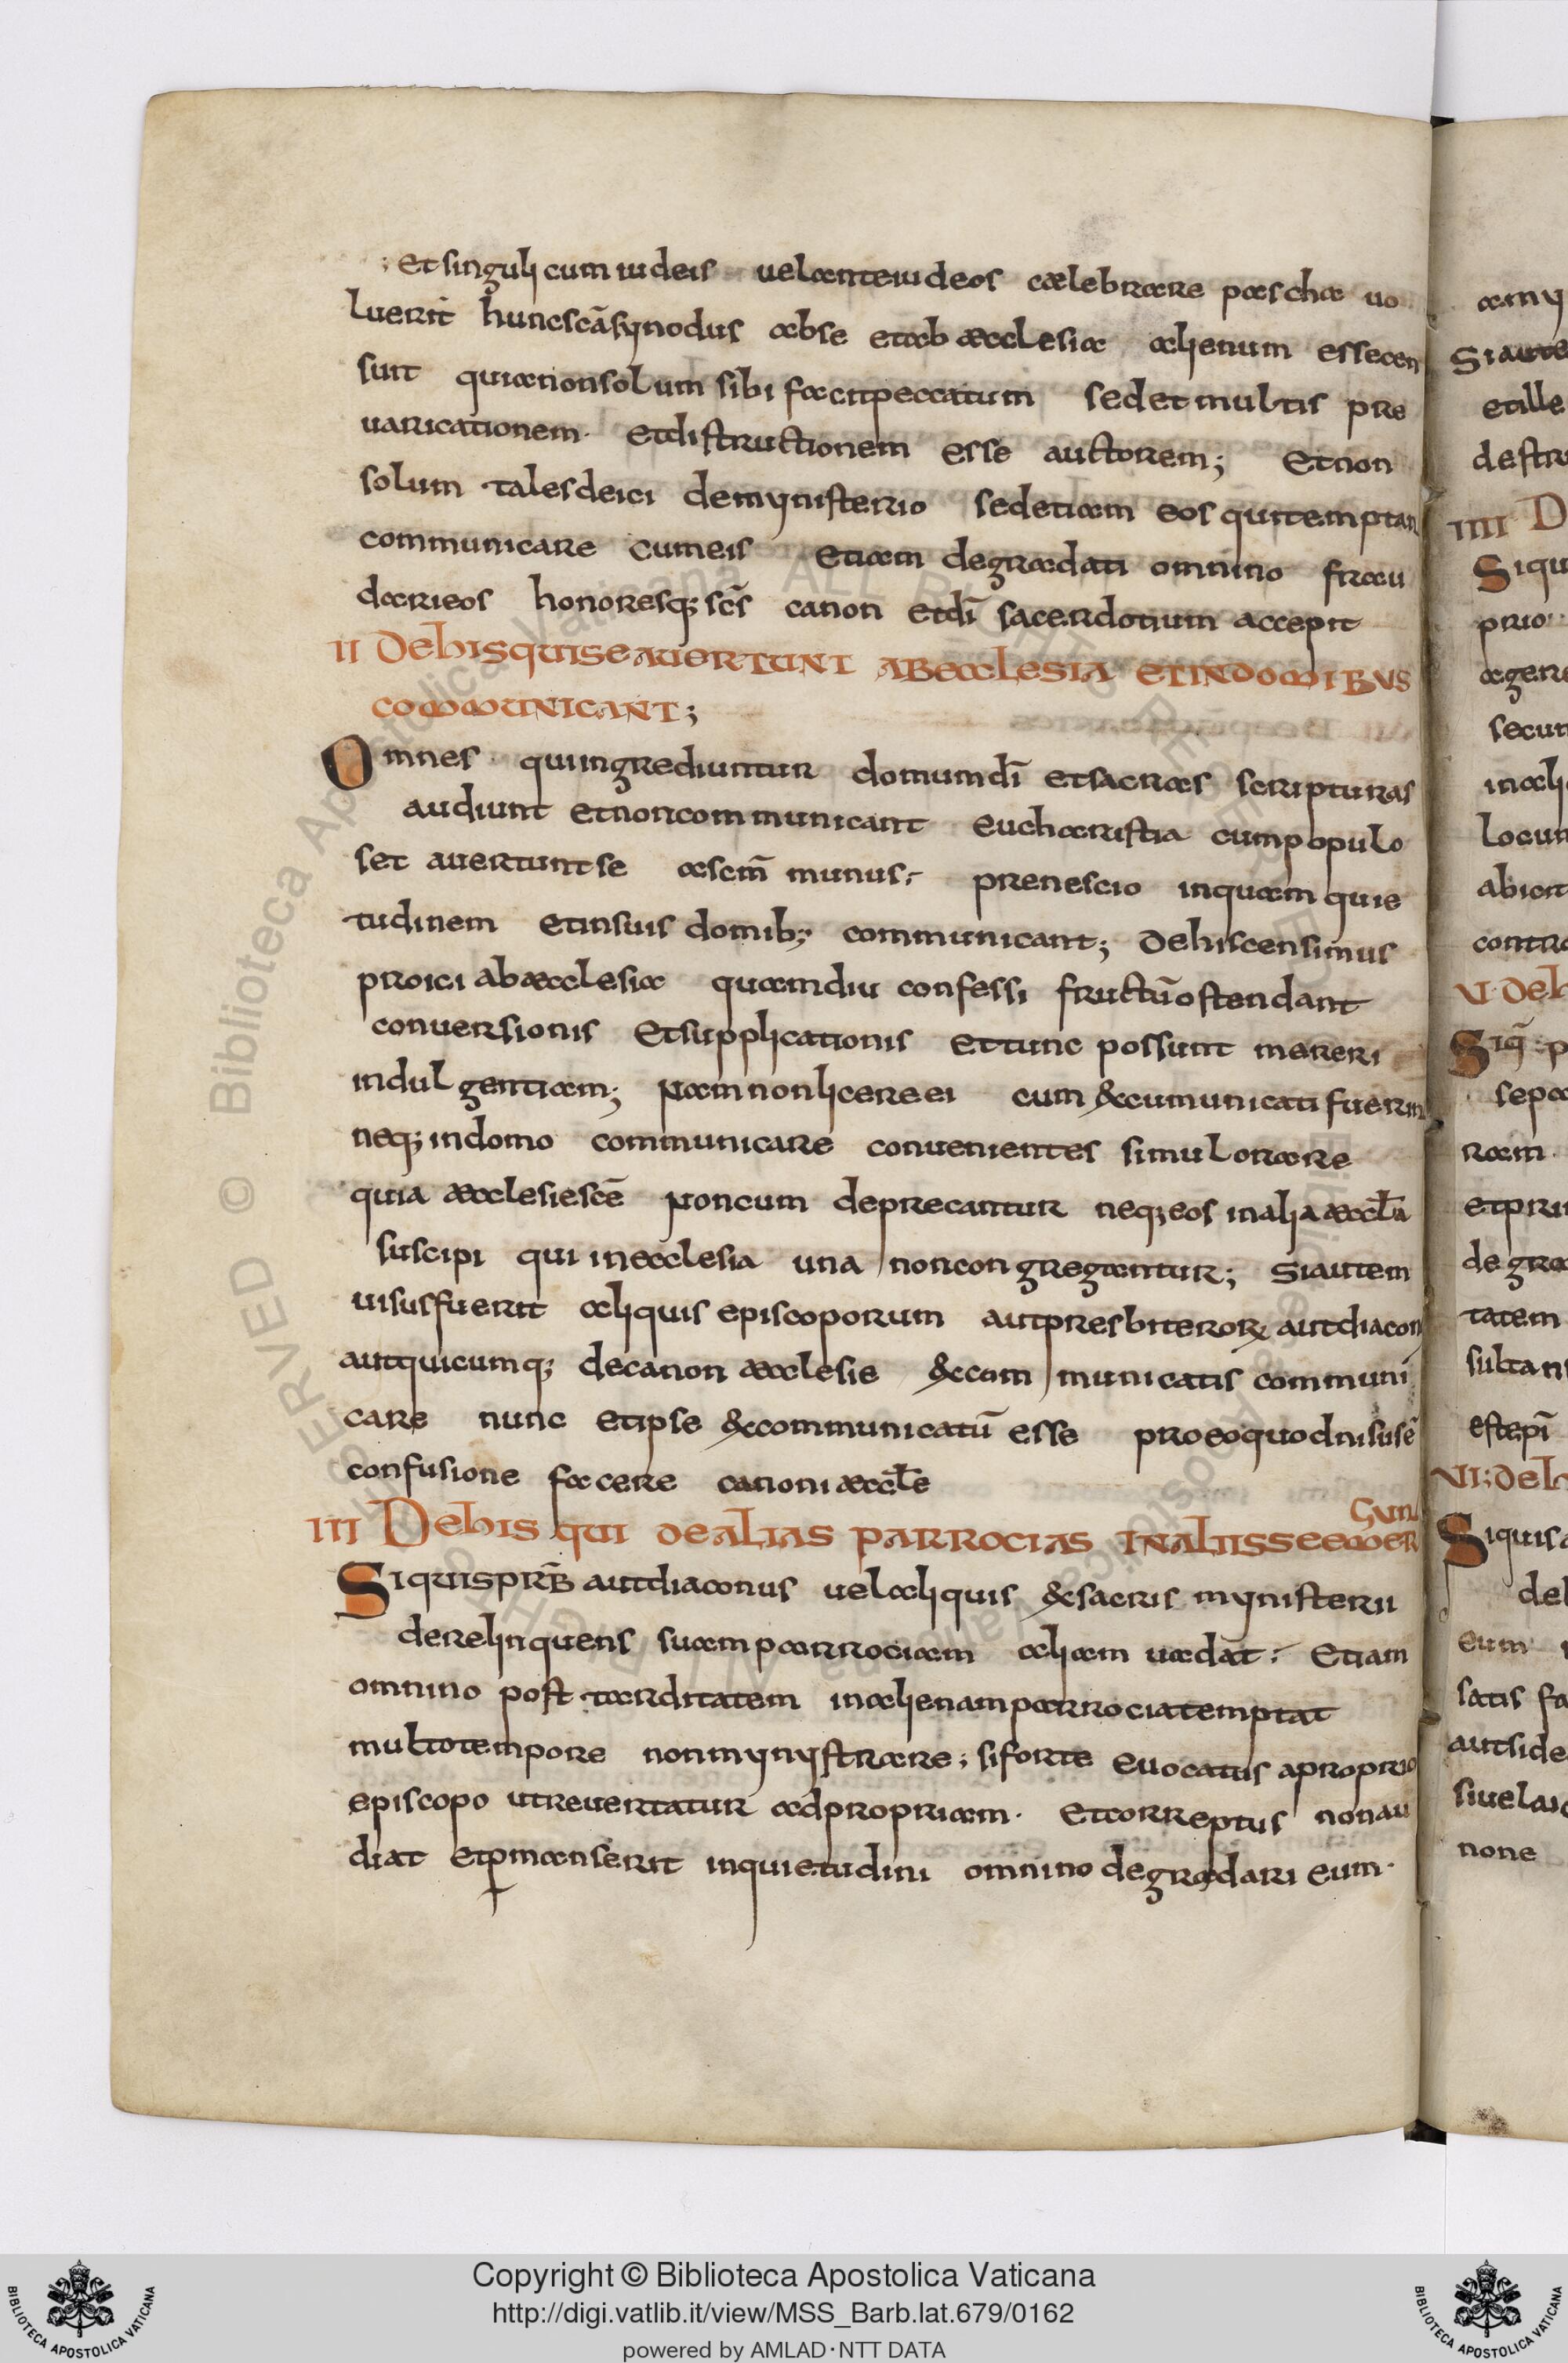 ; et singuli cum iudeis uel ante iudeos cælebrare pascha uo
luerit hunc scā synodus abse et ab æcclesia alienum esse cen
suit quia non solum sibi facit peccatum sed et multis pre
uaricationem· et distructionem esse auctorem; Et non
solum tales deici de mynisterio sed etiam eos qui temptan
communicare cum eis etiam degradati omnino frau
dari eos honoresq; scs̄ canon et dī sacerdotium accepit
II De his qui se auertunt ab ecclesia et in domibus
communicant;
Omnes qui ingrediuntur domum dī et sacras scripturas
audiunt et non communicant eucharistia cum populo
set auertunt se a scm̄ munus; pre nescio in quam quie
tudinem et in suis domib; communicant; De his censimus
proici ab æcclesia quamdiu confessi fructū ostendant
conuersionis et supplicationis et tunc possunt mereri
indulgentiam; Nam non licere ei cum excumunicati fuerin
neq; in domo communicare conuenientes simul orare
quia æcclesie scē non cum deprecantur neq; eos in alia æccla̅
suscipi qui in ecclesia una non congregantur; Si autem
uisus fuerit aliquis episcoporum aut presbiterorꝝ aut diacon
aut quicumq; de canon æcclesie excommunicatis communi
care nunc et ipse excommunicatū esse pro eo quod nisus ē
confusione facere canoni æccle̅
III De his qui de alias parrocias in aliis se emer
gun
Si quis prb̄ aut diaconus uel aliquis ex sacris mynisterii
derelinquens suam parrociam aliam uadat; Etiam
omnino post tarditatem in alienam parrocia temptat
multo tempore non mynystrare; si forte euocatus a proprio
episcopo ut reuertatur ad propriam· et correptus non au
diat et ꝑmanserit inquietudini omnino degradari eum·
amy
Si aute
et ille
destru
IIII D
Siqu
prio
agere
secun
in ali
locum
abicit
contra
V· De h
Siq̄ p
sepa
ram·
et pri
degra
tatem
sultan
est epī
VI; De h
Si quis a
del
eum
satis fa
aut side
siue laic
none
Copyright © Biblioteca Apostolica Vaticana
http://digi.vatlib.it/view/MSS_Barb.lat.679/0162
powered by AMLAD·NTT DATA
BIBLIOTECA APOSTOLICA VATICANA
BIBLIOTECA APOSTOLICA VATICANA